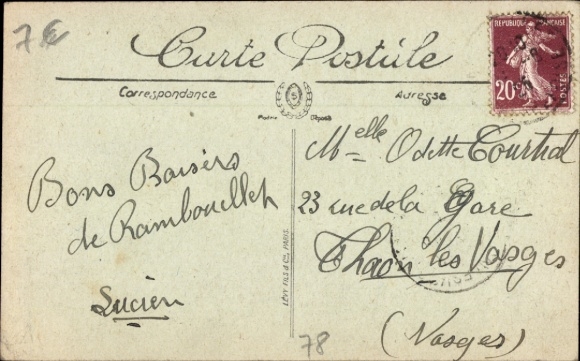 7€
Carte Postale
RÉPUBLIQUE FRANÇAISE
20c
POSTES
Correspondance
Adresse
Bons Baisers
de Rambouillet
Lucien
LÉVY FILS & Cie, PARIS
Melle Odette Courtial
23 rue de la Gare
Thaon les Vosges
(Vosges)
78